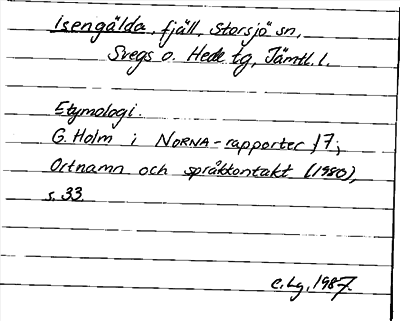 Isengälda, fjäll, Storsjö sn,
Svegs o. Hede tg, Jämtl. l.
Etymologi.
G. Holm i NORNA-rapporter 17;
Ortnamn och språkkontakt (1980),
s. 33.
C. Lg, 1987.